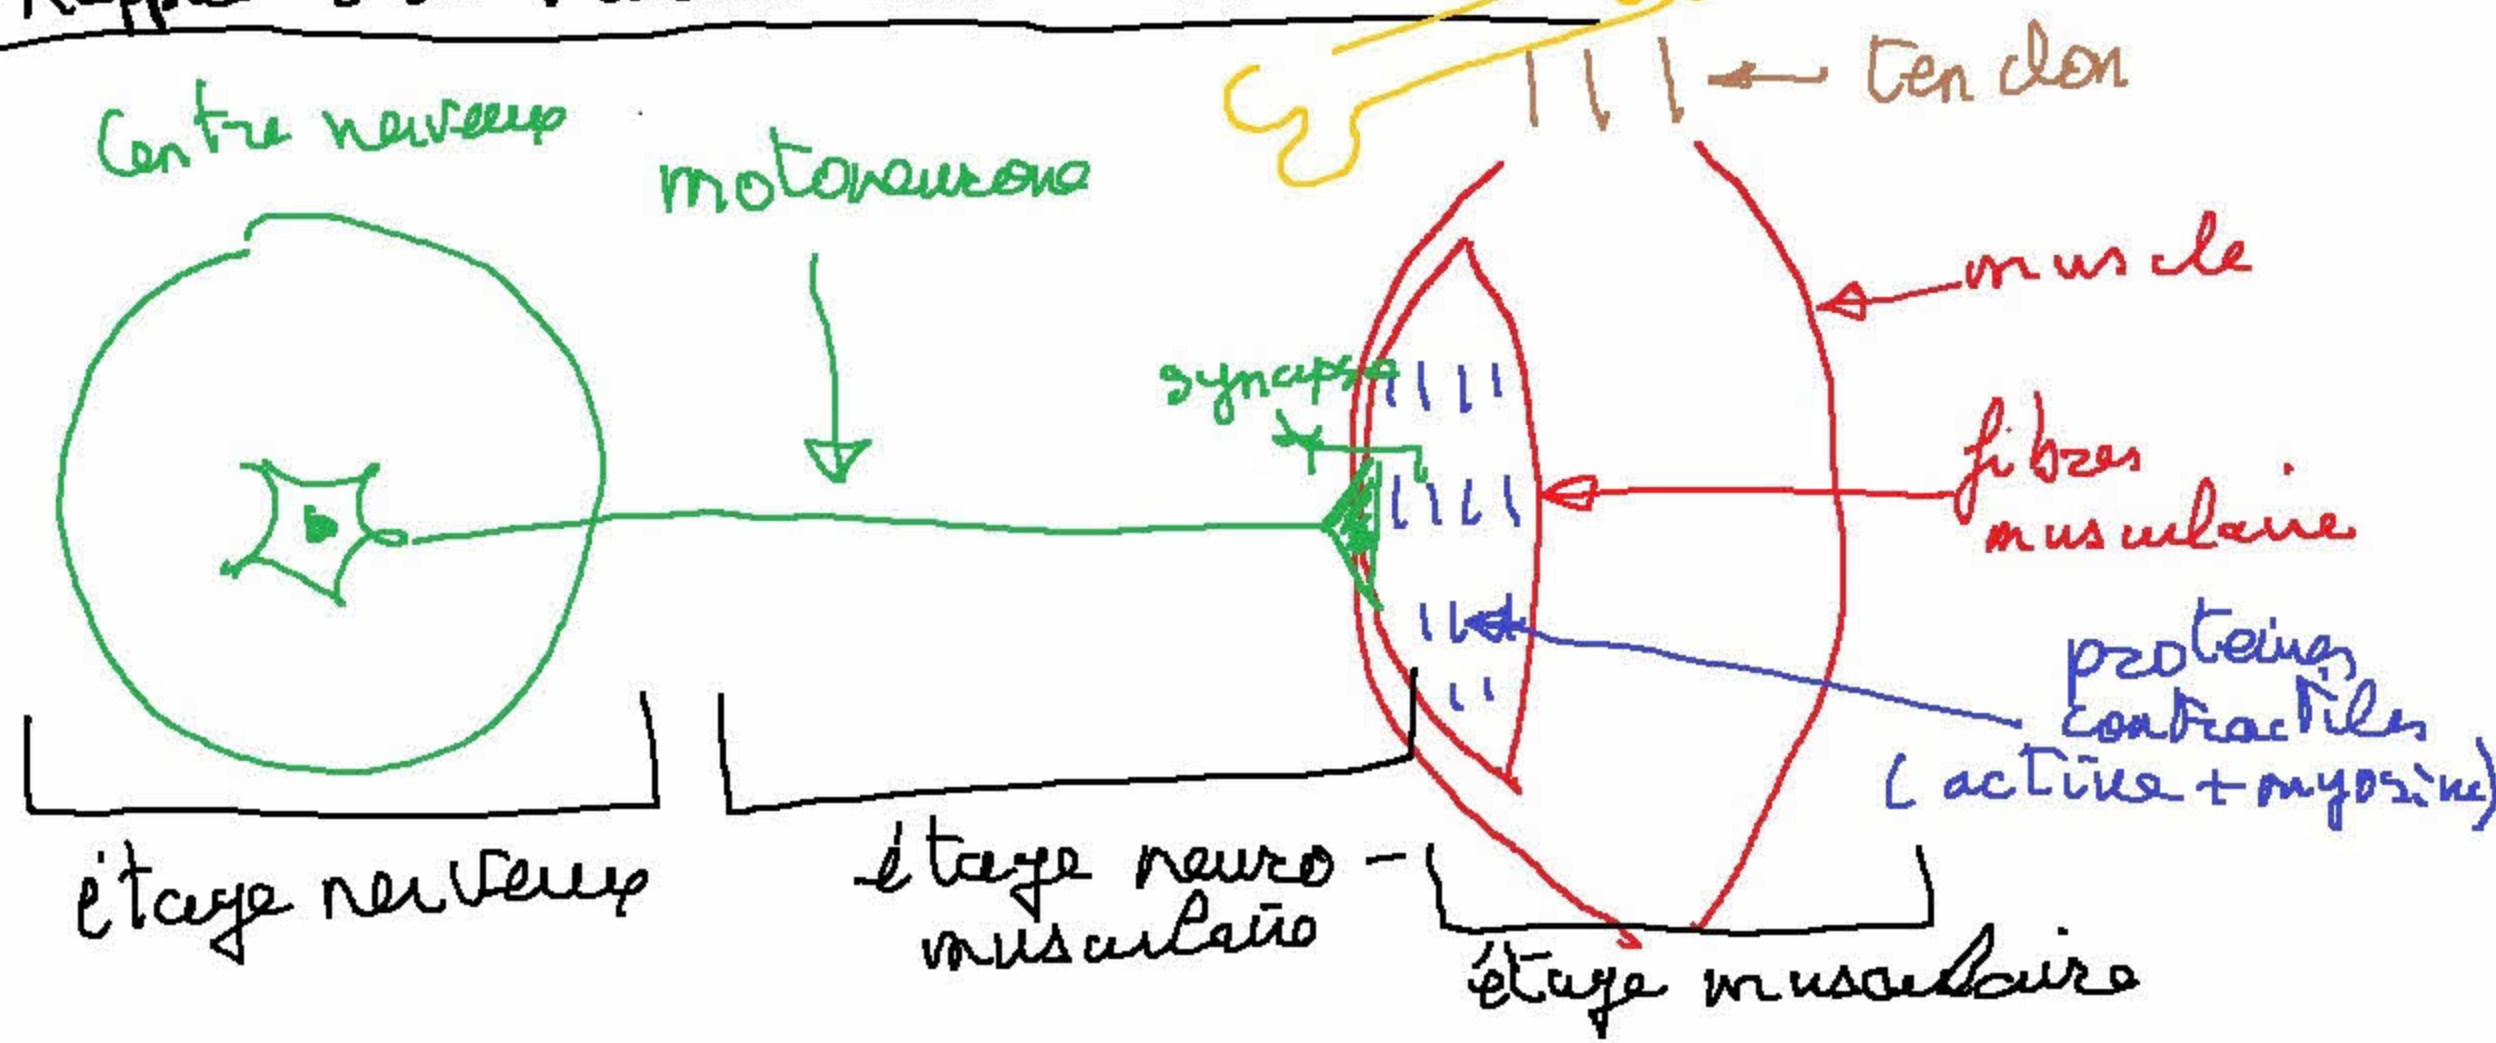 Centre nerveux
motoneurone
tendon
muscle
synapse
fibres
musculaire
proteines
contractiles
(actine + myosine)
étage nerveux
étage neuro-
musculaire
étage musculaire